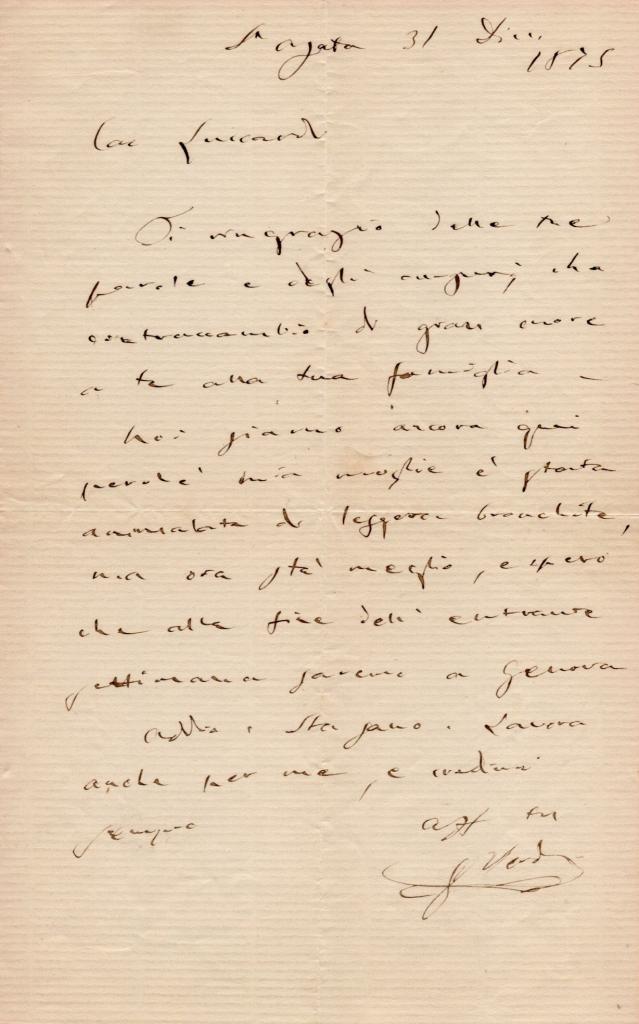 St Agata 31 Dic.
1875
Car Luccardi
Ti ringrazio delle tue
parole e degli augurj, che
contraccambio di gran cuore
a te alla tua famiglia –
Noi siamo ancora qui
perchè mia moglie è stata
ammalata di leggera bronchite,
ma ora stà meglio, e spero
che alla fine dell' entrante
settimana saremo a Genova
Addio. Sta sano. Lavora
anche per me, e credimi
sempre
aff tuo
G Verdi